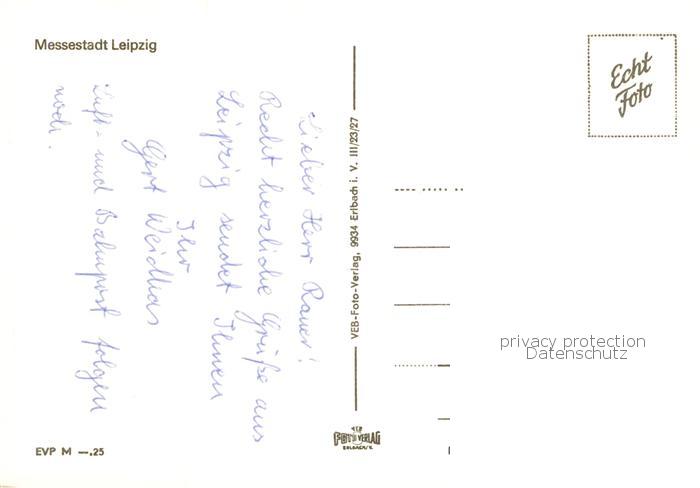 Messestadt Leipzig
Lieber Herr Rauer!
Recht herzliche Grüße aus
Leipzig sendet Ihnen
Ihr
Gert Weidhas
Luft- und Bahnpost folgen
noch.
EVP M —.25
VEB-Foto-Verlag, 9934 Erlbach i. V. III/23/27
VEB
FOTO VERLAG
ERLBACH/V.
Echt
Foto
privacy protection
Datenschutz